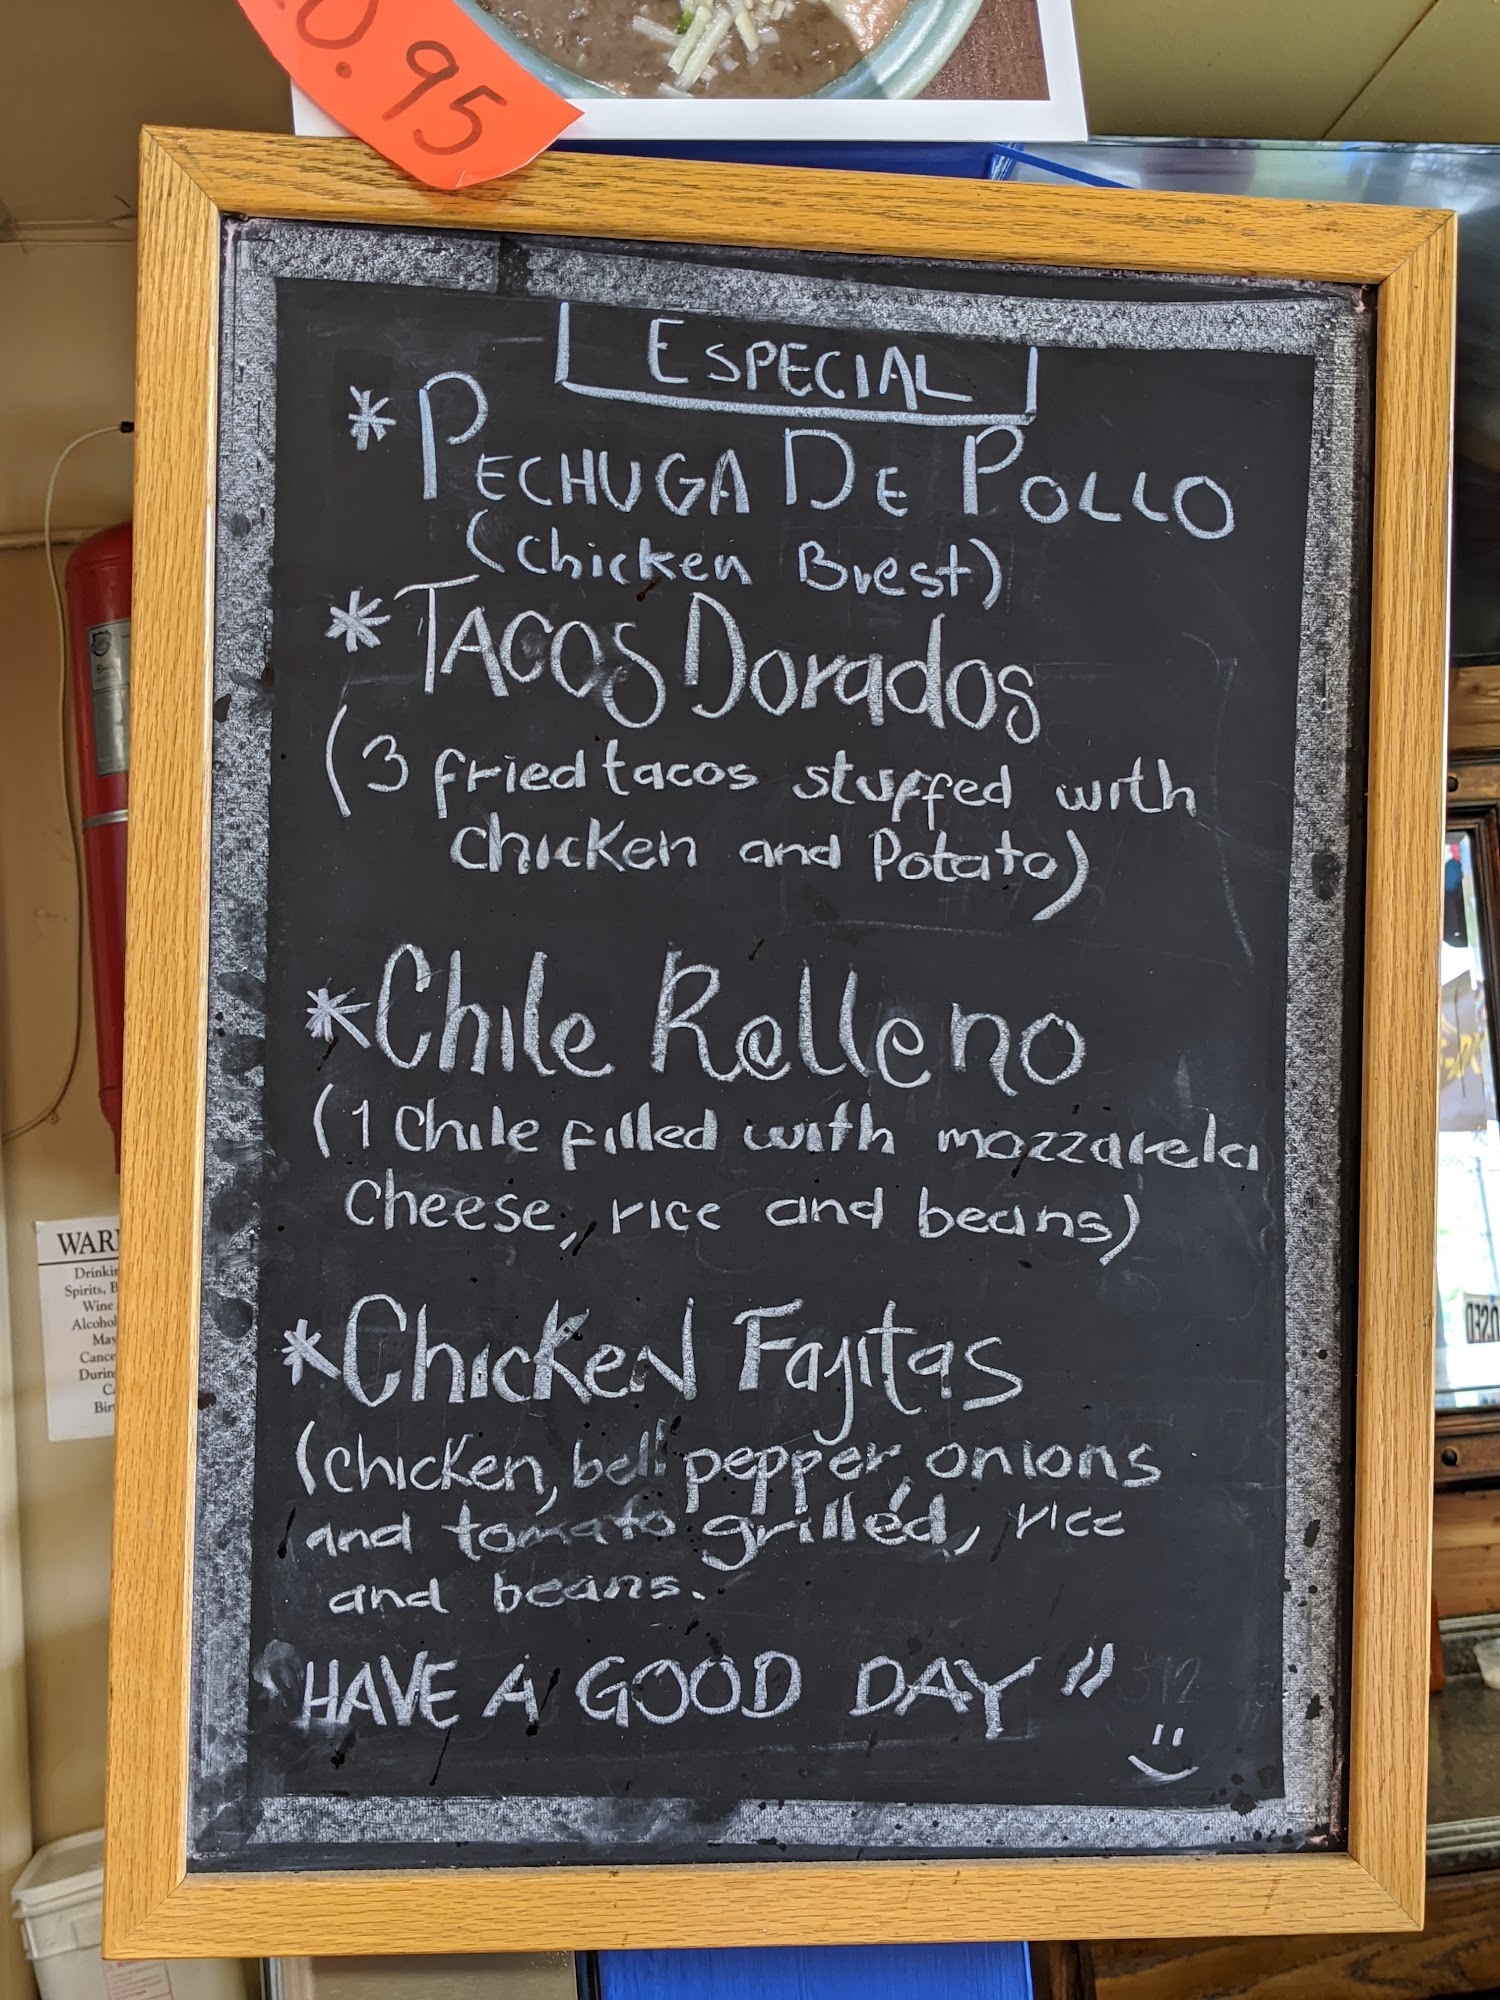 0.95
ESPECIAL
* PECHUGA DE POLLO
(chicken Brest)
* TACOS Dorados
(3 fried tacos stuffed with
chicken and Potato)
* Chile Relleno
(1 chile filled with mozzarela
cheese, rice and beans)
* Chicken Fajitas
(chicken, bell pepper, onions
and tomato grilled, rice
and beans.
"HAVE A GOOD DAY"
WAR
Drinkin
Spirits, B
Wine
Alcohol
May
Cance
Durin
Bir